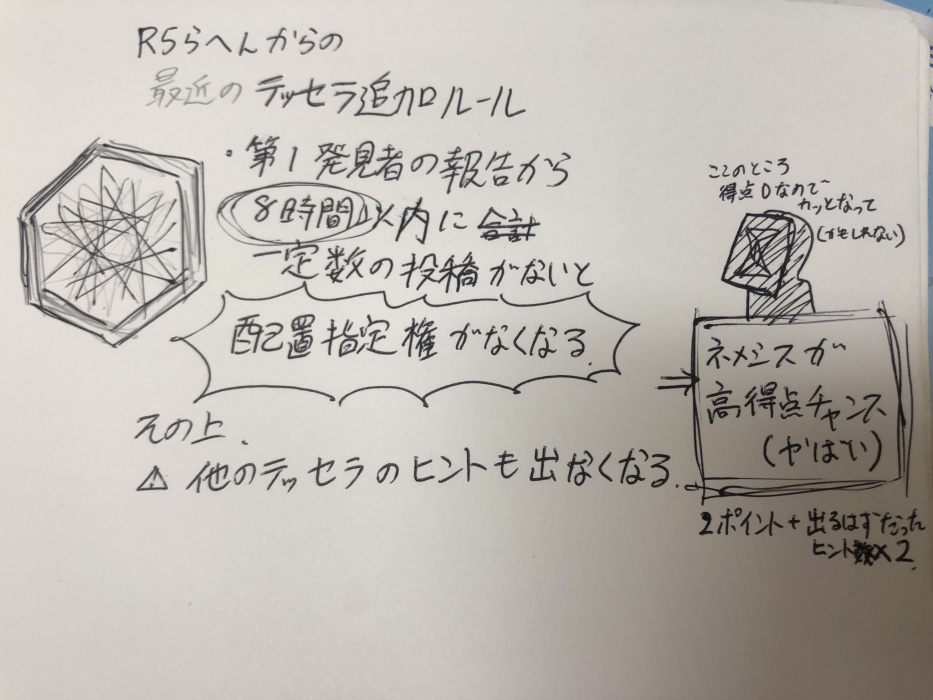 R5らへんからの
最近のテッセラ追加ルール
・第1発見者の報告から
8時間以内に合計
一定数の投稿がないと
配置指定権がなくなる.
その上、
⚠他のテッセラのヒントも出なくなる.
ここのところ
得点0なので
カッとなって
(かもしれない)
⇒ネメシスが
高得点チャンス
(やばい)
2ポイント+出るはずだった
ヒント数×2